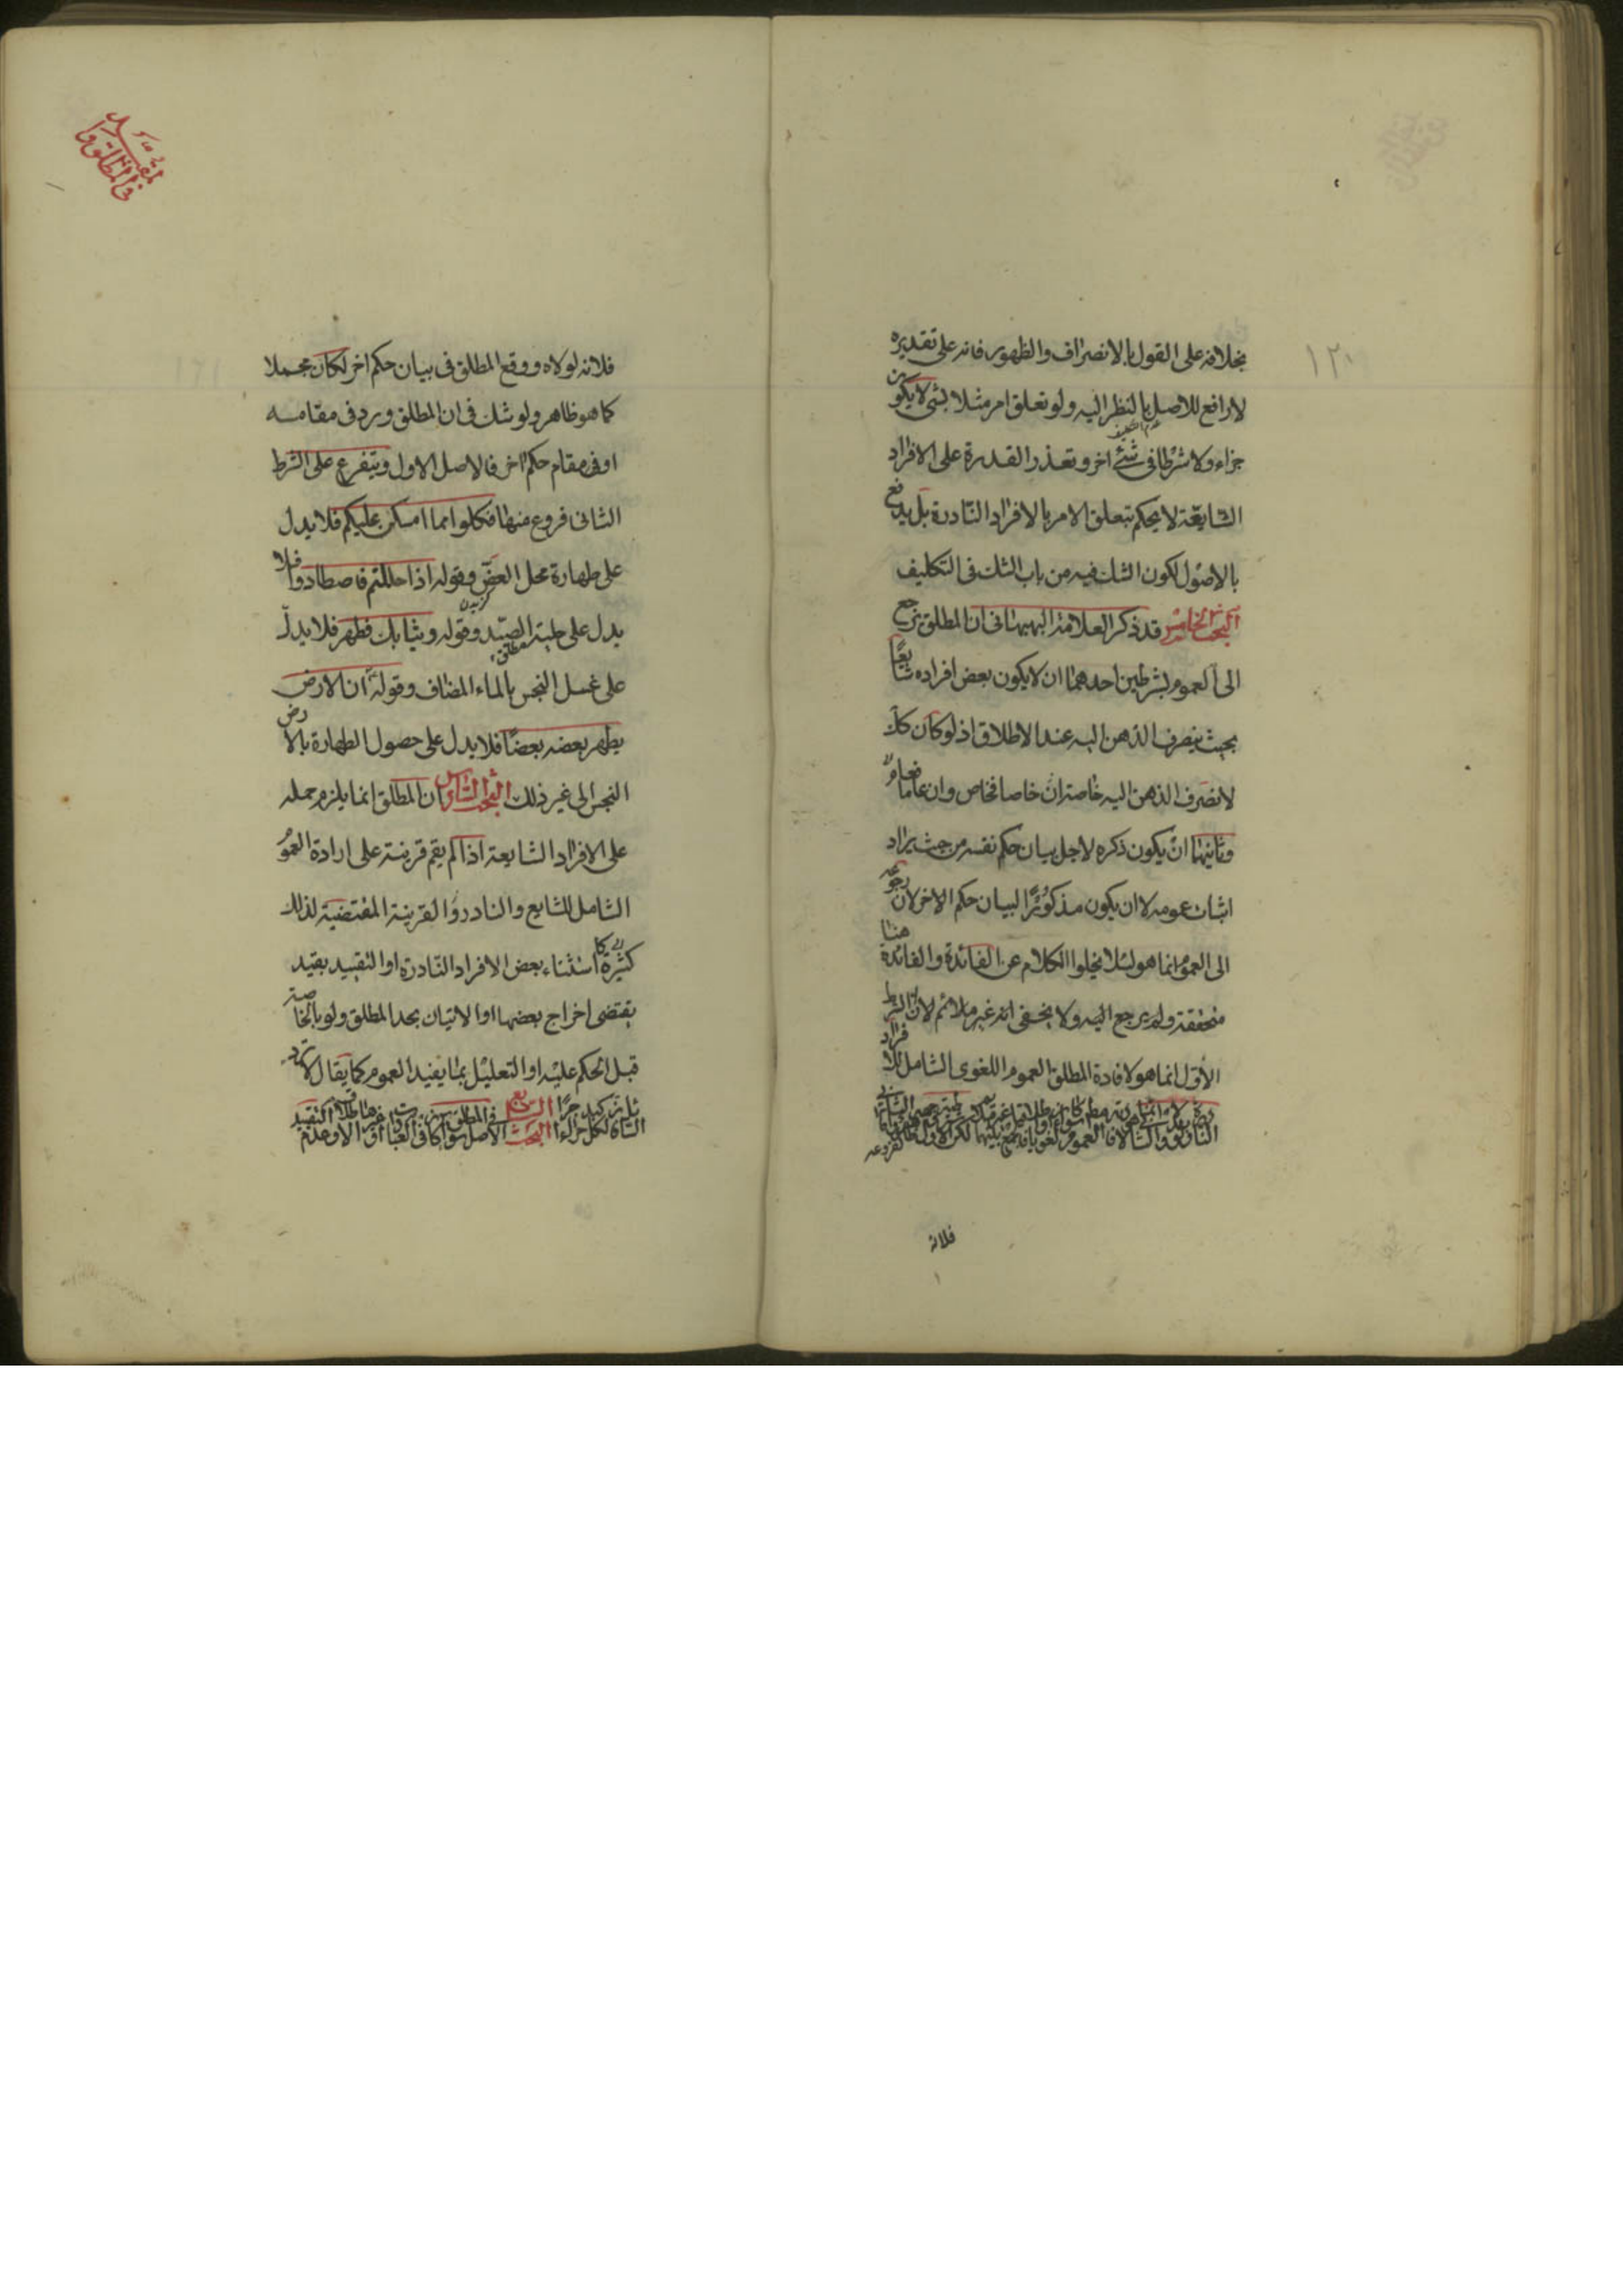 ١٢٠
بخلافه على القول بالانصراف والظهور فانه على تقديره
لا رافع للاصل بالنظر اليه ولو تعلق امر مثلا بشئ لا يكون
جزاء ولا شرطا فى شئ اخر وتعذر القدرة على الافراد
الشايعة لا يحكم بتعلق الامر بالافراد النادرة بل يدفع
بالاصول لكون الشك فيه من باب الشك فى التكليف
البحث الخامس قد ذكر العلامة البهبهانى ان المطلق يرجع
الى العموم بشرطين احدهما ان لا يكون بعض افراده شايعًا
بحيث ينصرف الذهن اليه عند الاطلاق اذ لو كان كك
لانصرف الذهن اليه خاصة ان خاصا فخاص وان عاما فعام
وثانيهما ان يكون ذكره لاجل بيان حكم نفسه من حيث يراد
اثبات عمومه لا ان يكون مذكورًا لبيان حكم الاخر لان رجوعه
الى العموم انما هو لئلا يخلوا الكلام عن الفائدة والفائدة هنا
متحققة ولم يرجع اليه ولا يخفى انه غير ملائم لان الشرط
الاول انما هو لافادة المطلق العموم اللغوى الشامل للافراد
فلانه
فلانه لولاه ووقع المطلق فى بيان حكم اخر لكان مجملا
كما هو ظاهر ولو شك فى ان المطلق ورد فى مقامه
او فى مقام حكم اخر فالاصل الاول ويتفرع على الشرط
الثانى فروع منها فكلوا مما امسكن عليكم فلا يدل
على طهارة محل العض وقوله اذا حللتم فاصطادوا فلا
يدل على حلية الصيد وقوله وثيابك فطهر فلا يدل
على غسل النجس بالماء المضاف وقوله ان الارض
يطهر بعضه بعضًا فلا يدل على حصول الطهارة بالارض
النجس الى غير ذلك البحث السادس ان المطلق انما يلزم حمله
على الافراد الشايعة اذا لم يقم قرينة على ارادة العموم
الشامل للشايع والنادر والقرينة المقتضية لذلك
كثيرة كاستثناء بعض الافراد النادرة او التقييد بقيد
يقتضى اخراج بعضها او الاتيان بحد المطلق ولو بالخاصة
قبل الحكم عليه او التعليل بما يفيد العموم كما يقال